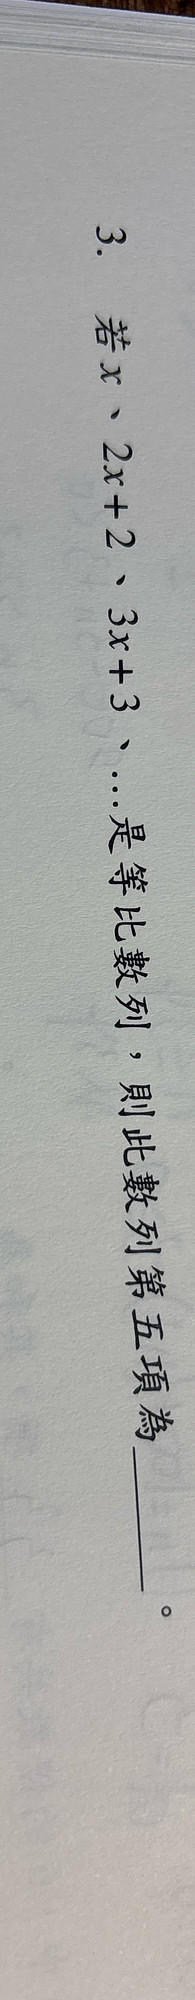 3. 若 x、2x+2、3x+3、…是等比數列，則此數列第五項為______。